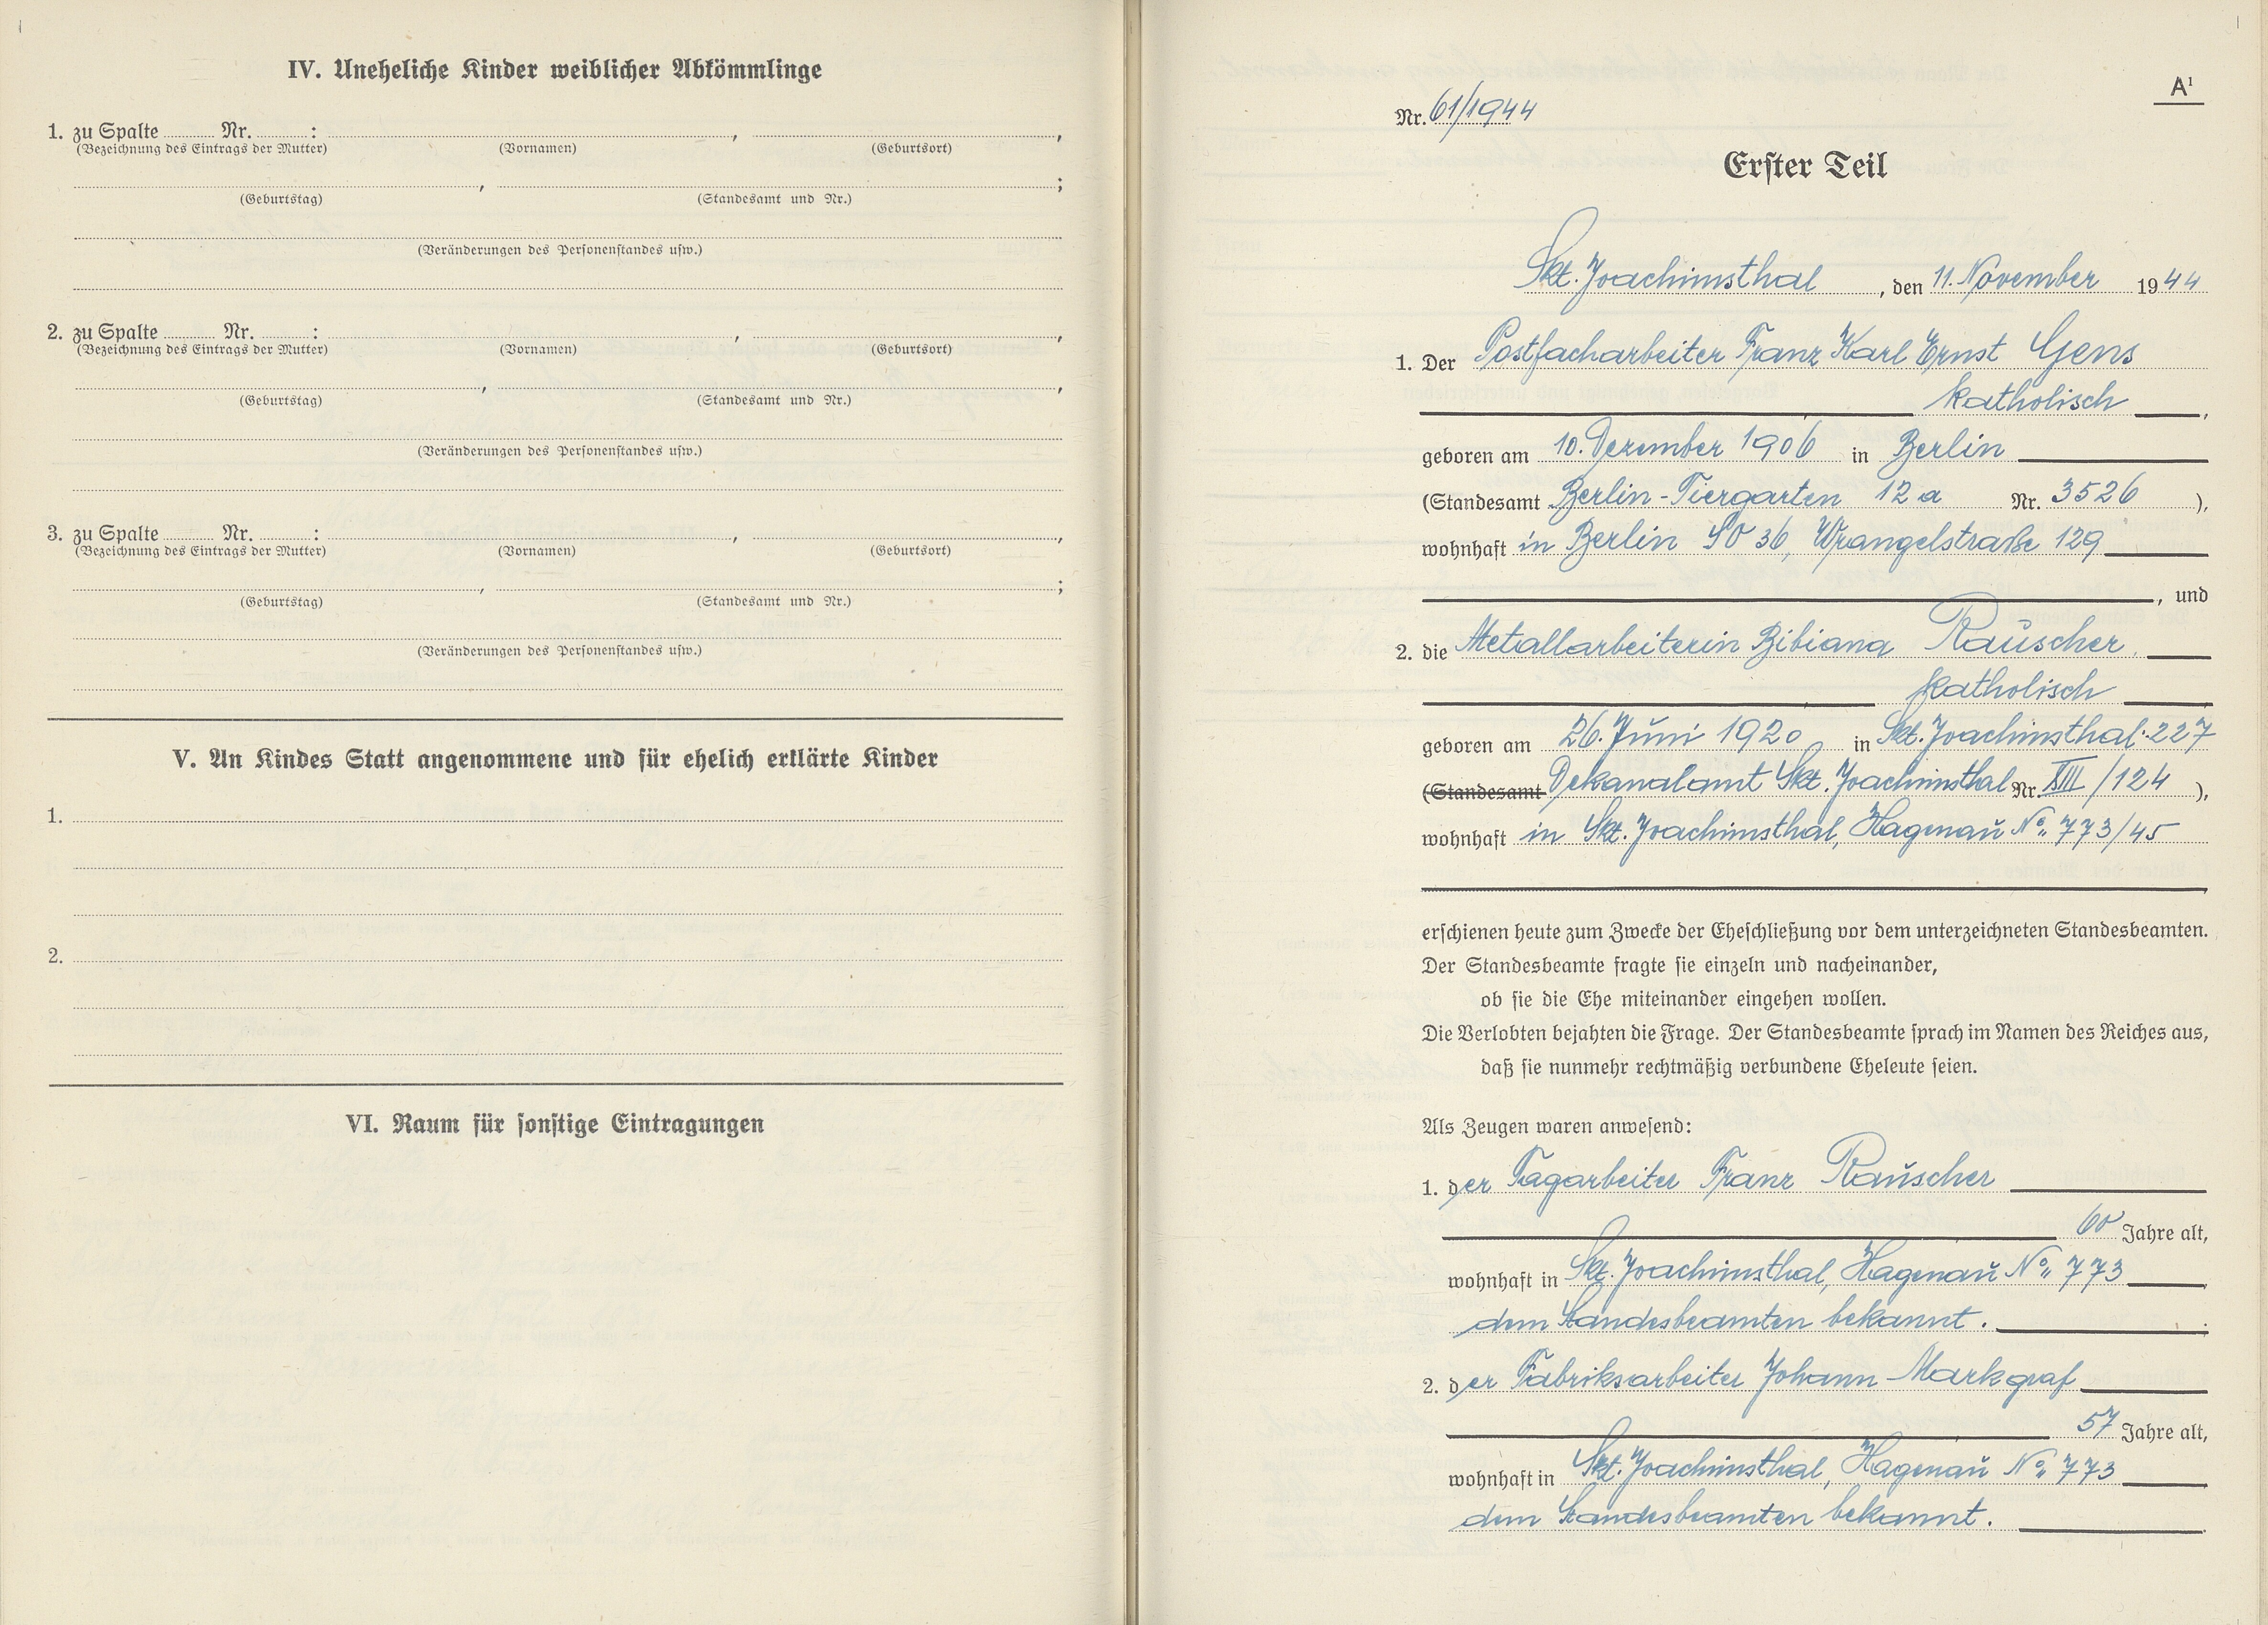 IV. Uneheliche Kinder weiblicher Abkömmlinge
1. zu Spalte ........ Nr. ........ : ........ , ........ ,
(Bezeichnung des Eintrags der Mutter) (Vornamen) (Geburtsort)
........ , ........ ;
(Geburtstag) (Standesamt und Nr.)
(Veränderungen des Personenstandes usw.)
2. zu Spalte ........ Nr. ........ : ........ , ........ ,
(Bezeichnung des Eintrags der Mutter) (Vornamen) (Geburtsort)
........ , ........ ,
(Geburtstag) (Standesamt und Nr.)
(Veränderungen des Personenstandes usw.)
3. zu Spalte ........ Nr. ........ : ........ , ........ ,
(Bezeichnung des Eintrags der Mutter) (Vornamen) (Geburtsort)
........ , ........ ;
(Geburtstag) (Standesamt und Nr.)
(Veränderungen des Personenstandes usw.)
V. An Kindes Statt angenommene und für ehelich erklärte Kinder
1.
2.
VI. Raum für sonstige Eintragungen
A¹
Nr. 61/1944
Erster Teil
Skt. Joachimsthal , den 11. November 1944
1. Der Postfacharbeiter Franz Karl Ernst Gens
katholisch ,
geboren am 10. Dezember 1906 in Berlin
(Standesamt Berlin-Tiergarten 12a Nr. 3526 ),
wohnhaft in Berlin SO 36, Wrangelstraße 129
, und
2. die Metallarbeiterin Bibiana Rauscher
katholisch
geboren am 26. Juni 1920 in Skt. Joachimsthal 227
(Standesamt Dekanalamt Skt. Joachimsthal Nr. XIII/124 ),
wohnhaft in Skt. Joachimsthal, Hagenau No. 773/45
erschienen heute zum Zwecke der Eheschließung vor dem unterzeichneten Standesbeamten.
Der Standesbeamte fragte sie einzeln und nacheinander,
ob sie die Ehe miteinander eingehen wollen.
Die Verlobten bejahten die Frage. Der Standesbeamte sprach im Namen des Reiches aus,
daß sie nunmehr rechtmäßig verbundene Eheleute seien.
Als Zeugen waren anwesend:
1. der Tagarbeiter Franz Rauscher
60 Jahre alt,
wohnhaft in Skt. Joachimsthal, Hagenau No. 773
dem Standesbeamten bekannt.
2. der Fabriksarbeiter Johann Markgraf
57 Jahre alt,
wohnhaft in Skt. Joachimsthal, Hagenau No. 773
dem Standesbeamten bekannt.